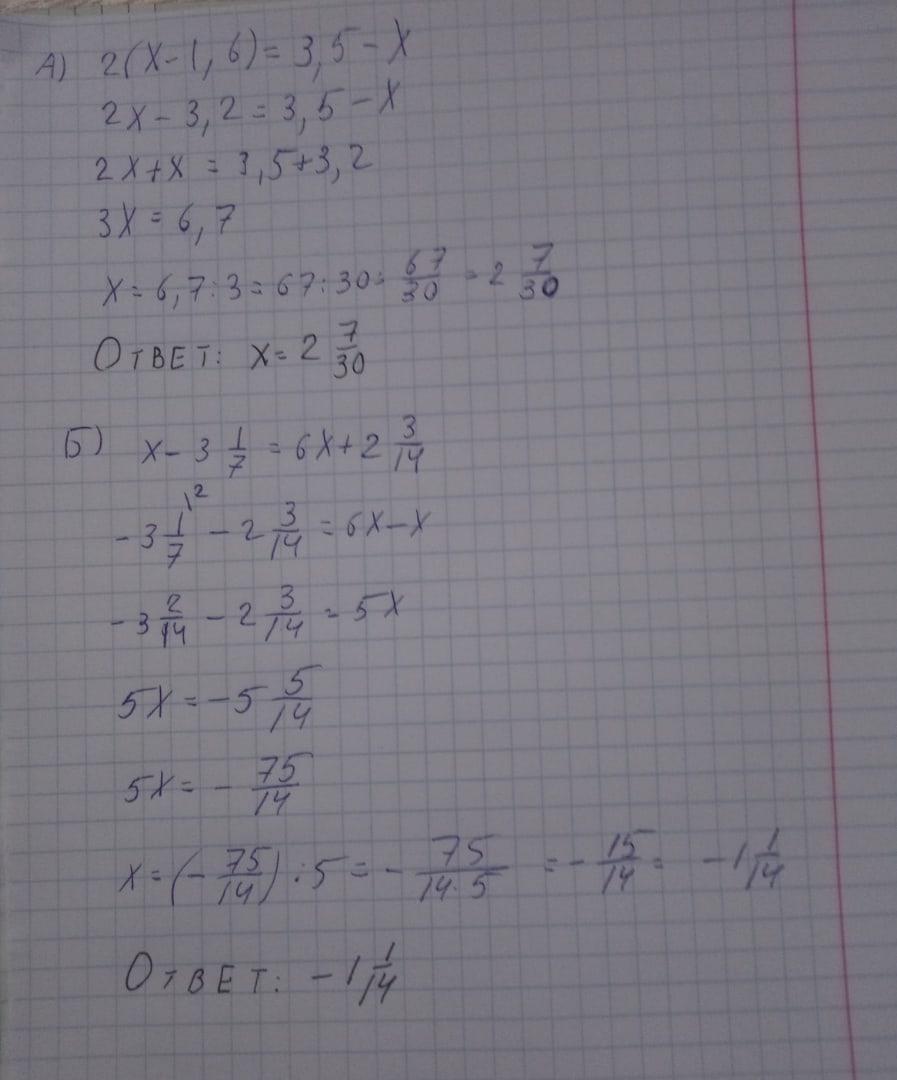 А) 2(x-1,6)=3,5-x
2x-3,2=3,5-x
2x+x=3,5+3,2
3x=6,7
x=6,7:3=67:30=67/30=2 7/30
Ответ: x=2 7/30
Б) x-3 1/7=6x+2 3/14
-3 1/7\2-2 3/14=6x-x
-3 2/14-2 3/14=5x
5x=-5 5/14
5x=-75/14
x=(-75/14):5=-75/14·5=-15/14=-1 1/14
Ответ: -1 1/14